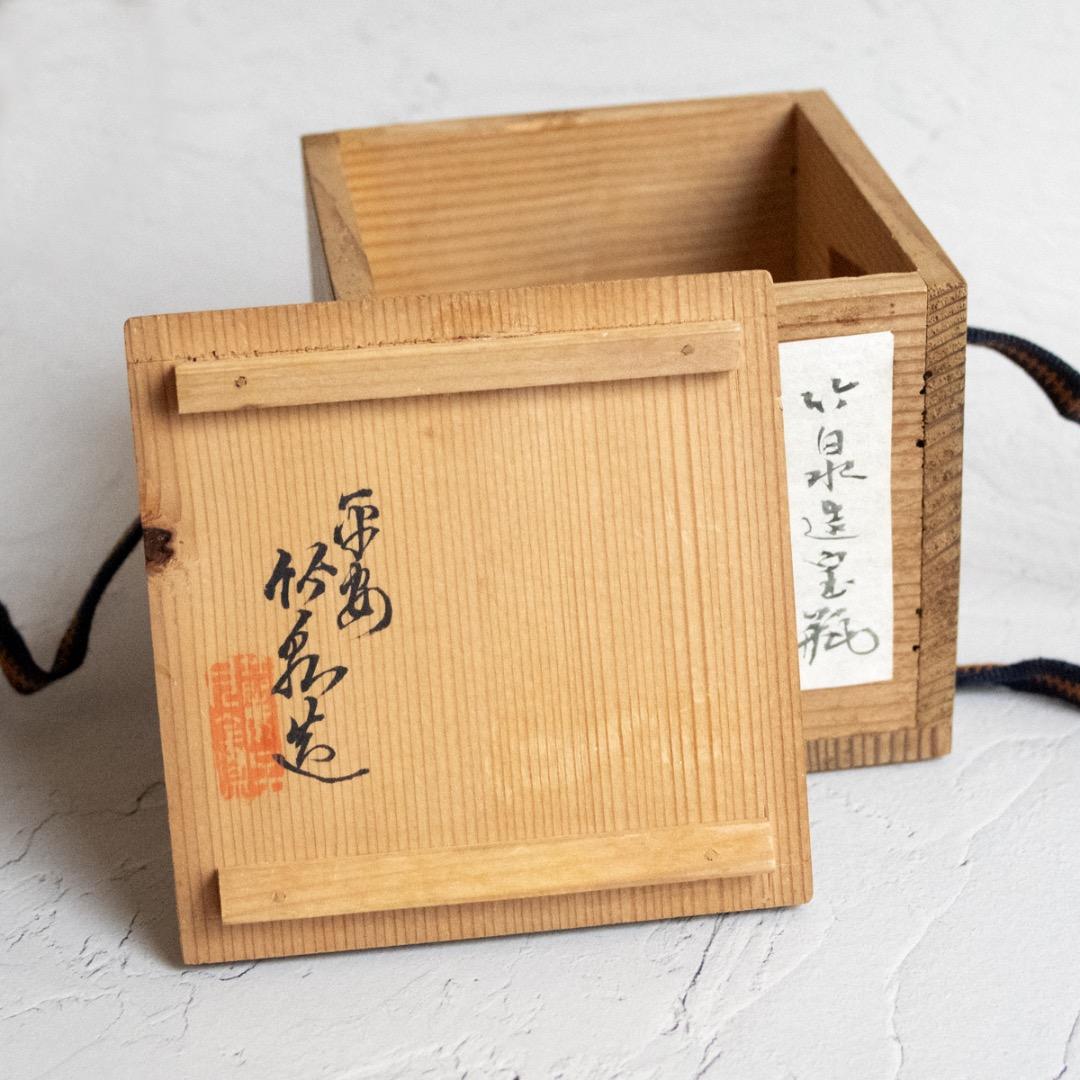 平安
竹泉造
竹泉造宝瓶